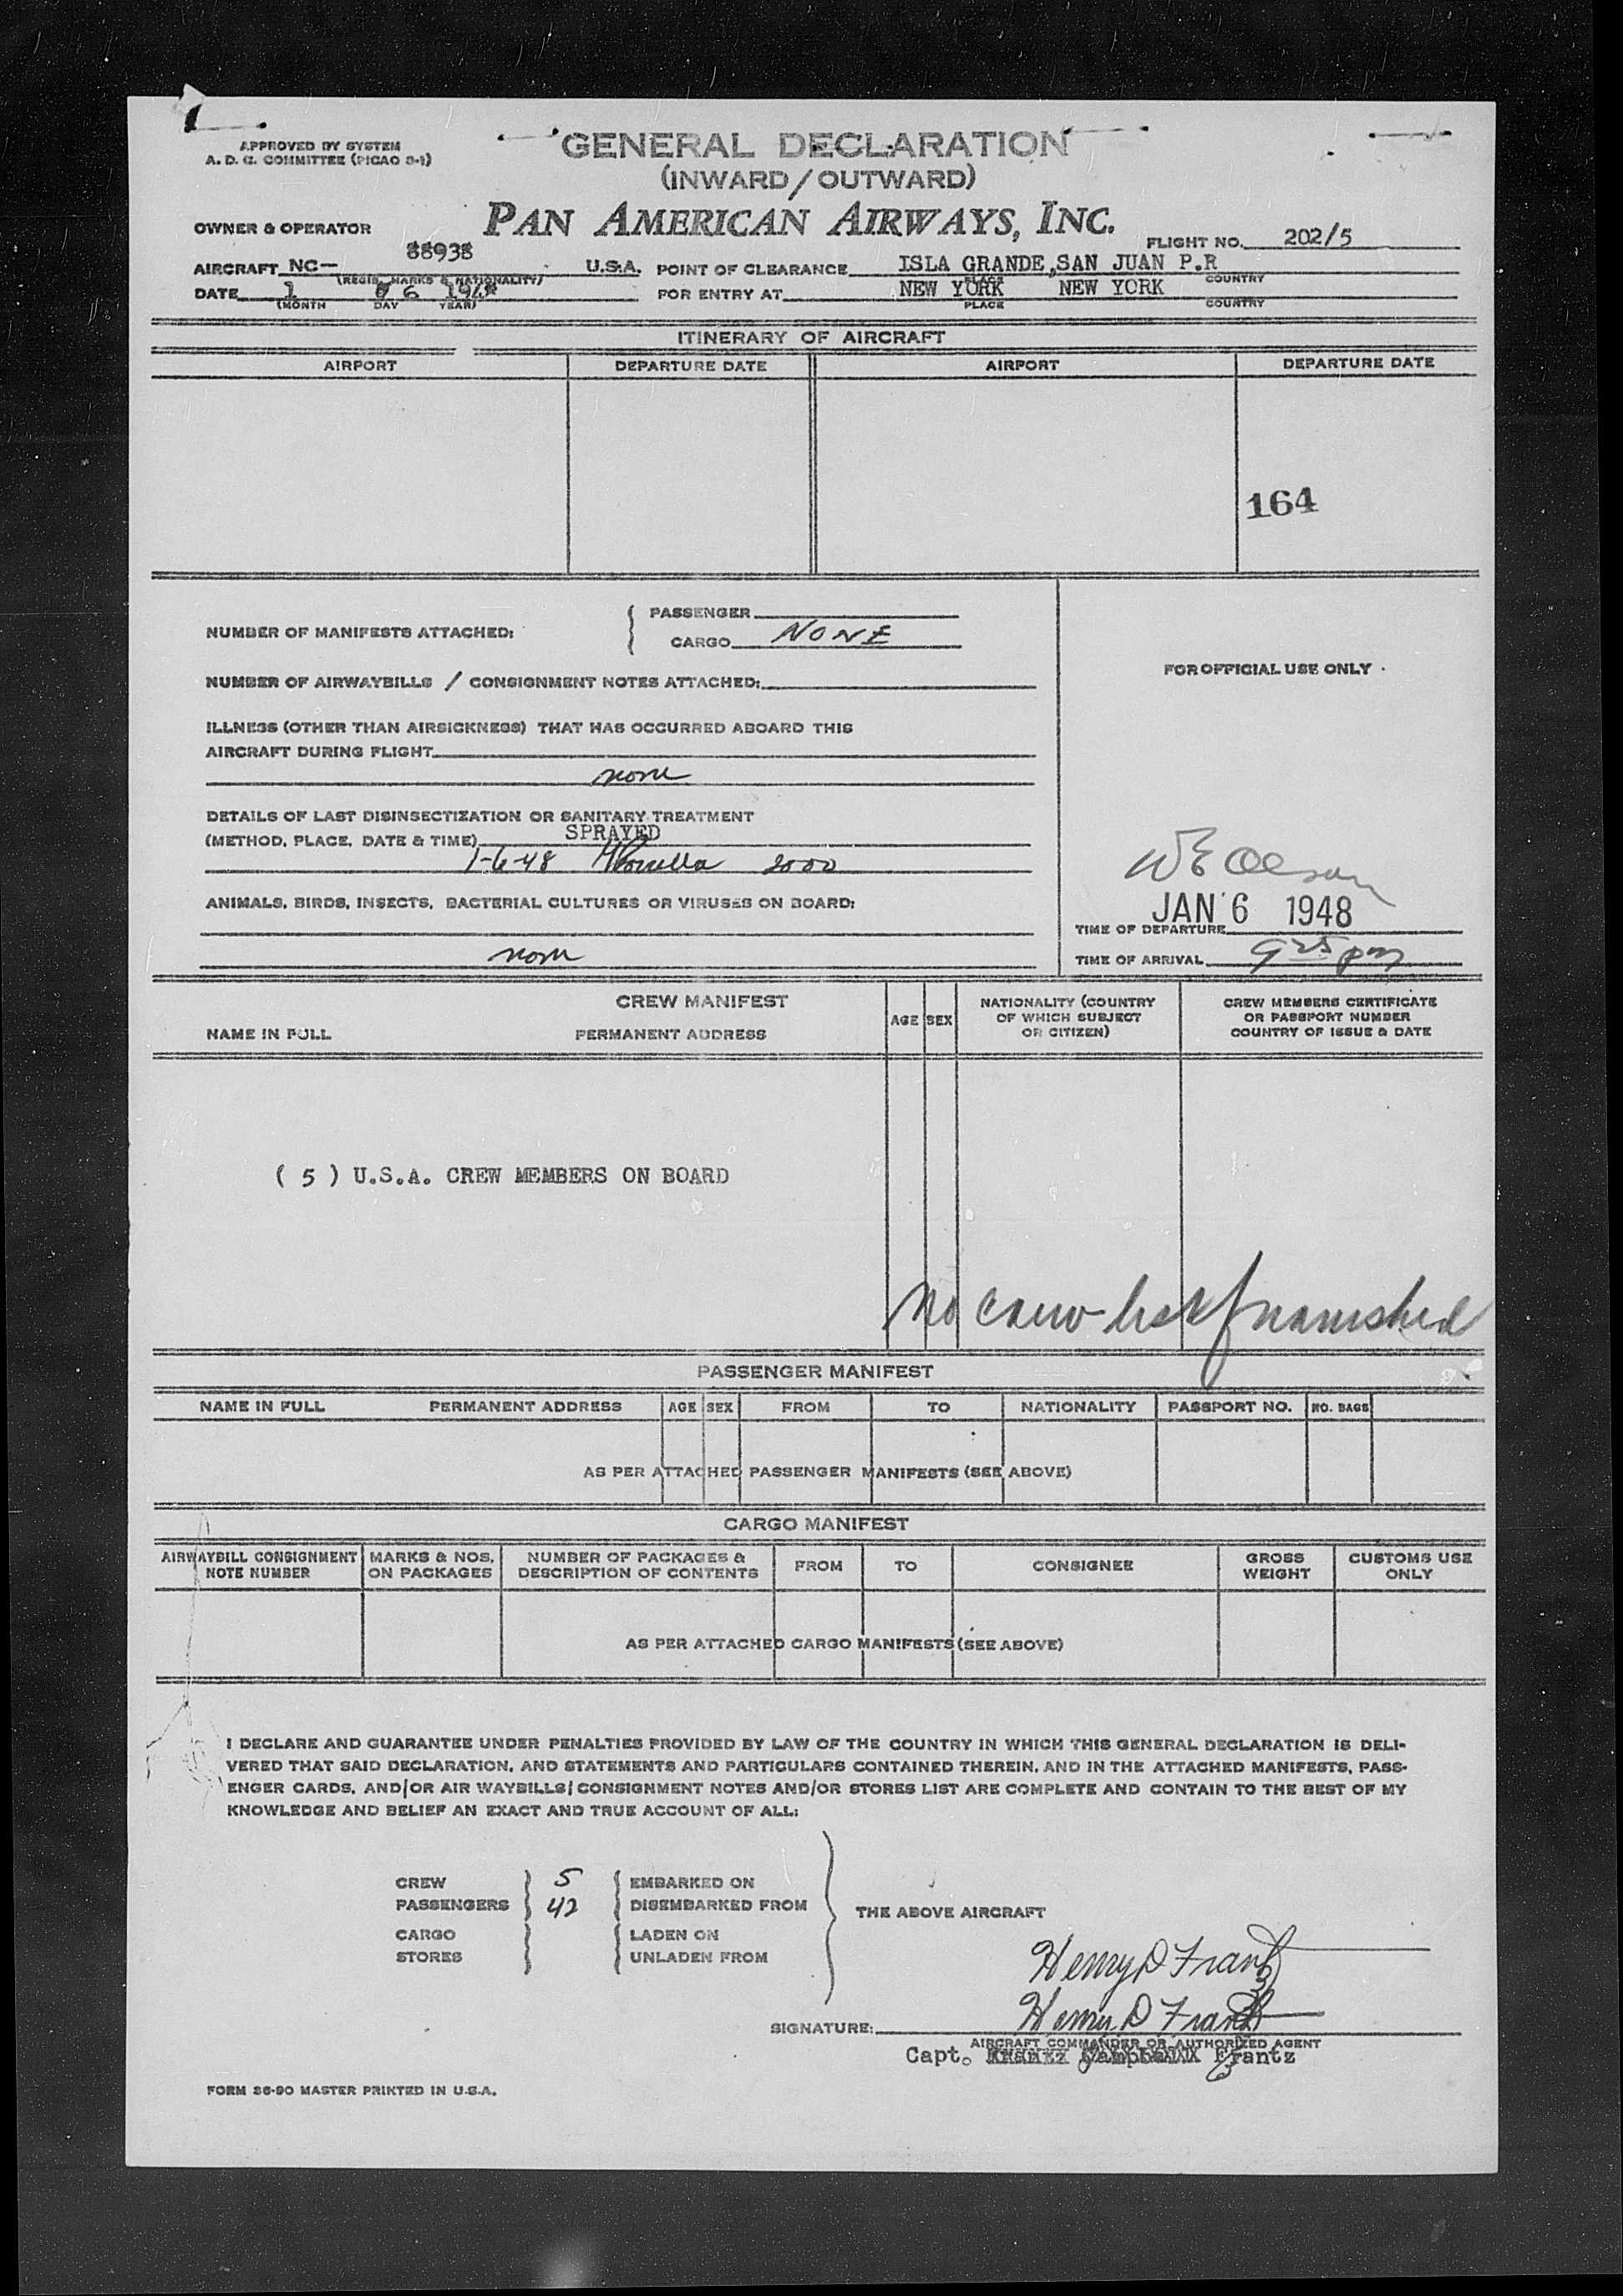 APPROVED BY SYSTEM
A. D. G. COMMITTEE (PICAO 3-1)
GENERAL DECLARATION
(INWARD/OUTWARD)
OWNER & OPERATOR
PAN AMERICAN AIRWAYS, INC.
FLIGHT NO. 202/5
AIRCRAFT NC- 88938 U.S.A.
(REGIS. MARKS & NATIONALITY)
POINT OF CLEARANCE ISLA GRANDE,SAN JUAN P.R
PLACE COUNTRY
DATE 1 6 1948
(MONTH DAY YEAR)
FOR ENTRY AT NEW YORK NEW YORK
PLACE COUNTRY
ITINERARY OF AIRCRAFT
AIRPORT DEPARTURE DATE AIRPORT DEPARTURE DATE
164
NUMBER OF MANIFESTS ATTACHED:
PASSENGER
CARGO NONE
FOR OFFICIAL USE ONLY
NUMBER OF AIRWAYBILLS / CONSIGNMENT NOTES ATTACHED:
ILLNESS (OTHER THAN AIRSICKNESS) THAT HAS OCCURRED ABOARD THIS
AIRCRAFT DURING FLIGHT
none
DETAILS OF LAST DISINSECTIZATION OR SANITARY TREATMENT
(METHOD, PLACE, DATE & TIME) SPRAYED
1-6-48 2000
ANIMALS, BIRDS, INSECTS, BACTERIAL CULTURES OR VIRUSES ON BOARD:
none
W E Olson
JAN 6 1948
TIME OF DEPARTURE
TIME OF ARRIVAL 9 25 pm
CREW MANIFEST
NAME IN FULL PERMANENT ADDRESS
AGE SEX
NATIONALITY (COUNTRY
OF WHICH SUBJECT
OR CITIZEN)
CREW MEMBERS CERTIFICATE
OR PASSPORT NUMBER
COUNTRY OF ISSUE & DATE
( 5 ) U.S.A. CREW MEMBERS ON BOARD
No crew list furnished
PASSENGER MANIFEST
NAME IN FULL PERMANENT ADDRESS AGE SEX FROM TO NATIONALITY PASSPORT NO. NO. BAGS
AS PER ATTACHED PASSENGER MANIFESTS (SEE ABOVE)
CARGO MANIFEST
AIRWAYBILL CONSIGNMENT
NOTE NUMBER
MARKS & NOS.
ON PACKAGES
NUMBER OF PACKAGES &
DESCRIPTION OF CONTENTS
FROM TO CONSIGNEE
GROSS
WEIGHT
CUSTOMS USE
ONLY
AS PER ATTACHED CARGO MANIFESTS (SEE ABOVE)
I DECLARE AND GUARANTEE UNDER PENALTIES PROVIDED BY LAW OF THE COUNTRY IN WHICH THIS GENERAL DECLARATION IS DELI-
VERED THAT SAID DECLARATION, AND STATEMENTS AND PARTICULARS CONTAINED THEREIN, AND IN THE ATTACHED MANIFESTS, PASS-
ENGER CARDS, AND/OR AIR WAYBILLS/CONSIGNMENT NOTES AND/OR STORES LIST ARE COMPLETE AND CONTAIN TO THE BEST OF MY
KNOWLEDGE AND BELIEF AN EXACT AND TRUE ACCOUNT OF ALL:
CREW 5 EMBARKED ON
PASSENGERS 42 DISEMBARKED FROM
THE ABOVE AIRCRAFT
CARGO LADEN ON
STORES UNLADEN FROM
Henry D Frantz
Henry D Frantz
SIGNATURE:
AIRCRAFT COMMANDER OR AUTHORIZED AGENT
Capt. Frantz
FORM 36-90 MASTER PRINTED IN U.S.A.